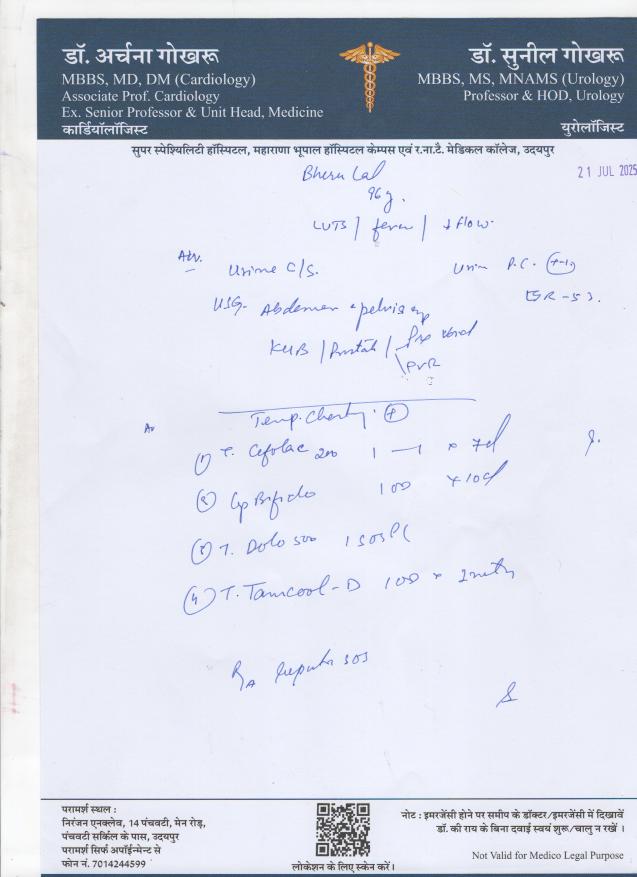 डॉ. अर्चना गोखरू
MBBS, MD, DM (Cardiology)
Associate Prof. Cardiology
Ex. Senior Professor & Unit Head, Medicine
कार्डियॉलॉजिस्ट
डॉ. सुनील गोखरू
MBBS, MS, MNAMS (Urology)
Professor & HOD, Urology
युरोलॉजिस्ट
सुपर स्पेश्यिलिटी हॉस्पिटल, महाराणा भूपाल हॉस्पिटल केम्पस एवं र.ना.टै. मेडिकल कॉलेज, उदयपुर
21 JUL 2025
Bheru Lal
96y.
LUTS / fever / ↓ flow
Adv.
Urine C/S.
Urine P.C.
ESR - 53.
USG- Abdomen & pelvis
KUB / Prostate / Pre void
\ PVR
Temp. Charting. +
(1) T. Cefolac 200 1 — 1 x 7d
(2) Cap Bifido 100 x 10d
(3) T. Dolo 500 1 SOS
(4) T. Tamcool-D 100 x
SOS
परामर्श स्थल :
निरंजन एनक्लेव, 14 पंचवटी, मेन रोड़,
पंचवटी सर्किल के पास, उदयपुर
परामर्श सिर्फ अपॉईन्मेन्ट से
फोन नं. 7014244599
लोकेशन के लिए स्केन करें।
नोट : इमरजेंसी होने पर समीप के डॉक्टर/इमरजेंसी में दिखावें
डॉ. की राय के बिना दवाई स्वयं शुरू/चालु न रखें ।
Not Valid for Medico Legal Purpose